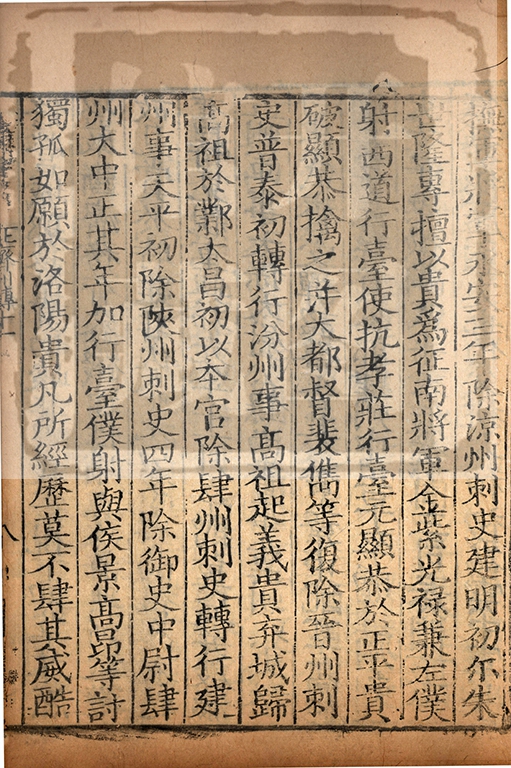 撫軍將軍永安三年除涼州刺史建明初尒朱
世隆專擅以貴為征南將軍金紫光禄兼左僕
射西道行臺使抗孝莊行臺元顯恭於正平貴
破顯恭擒之并大都督裴儁等復除晉州刺
史普泰初轉行汾州事高祖起義貴弃城歸
高祖於鄴太昌初以本官除肆州刺史轉行建
州事天平初除陝州刺史四年除御史中尉肆
州大中正其年加行臺僕射與侯景高昂等討
獨孤如願於洛陽貴凡所經歷莫不肆其威酷
八